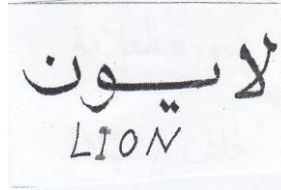 لايون
LION